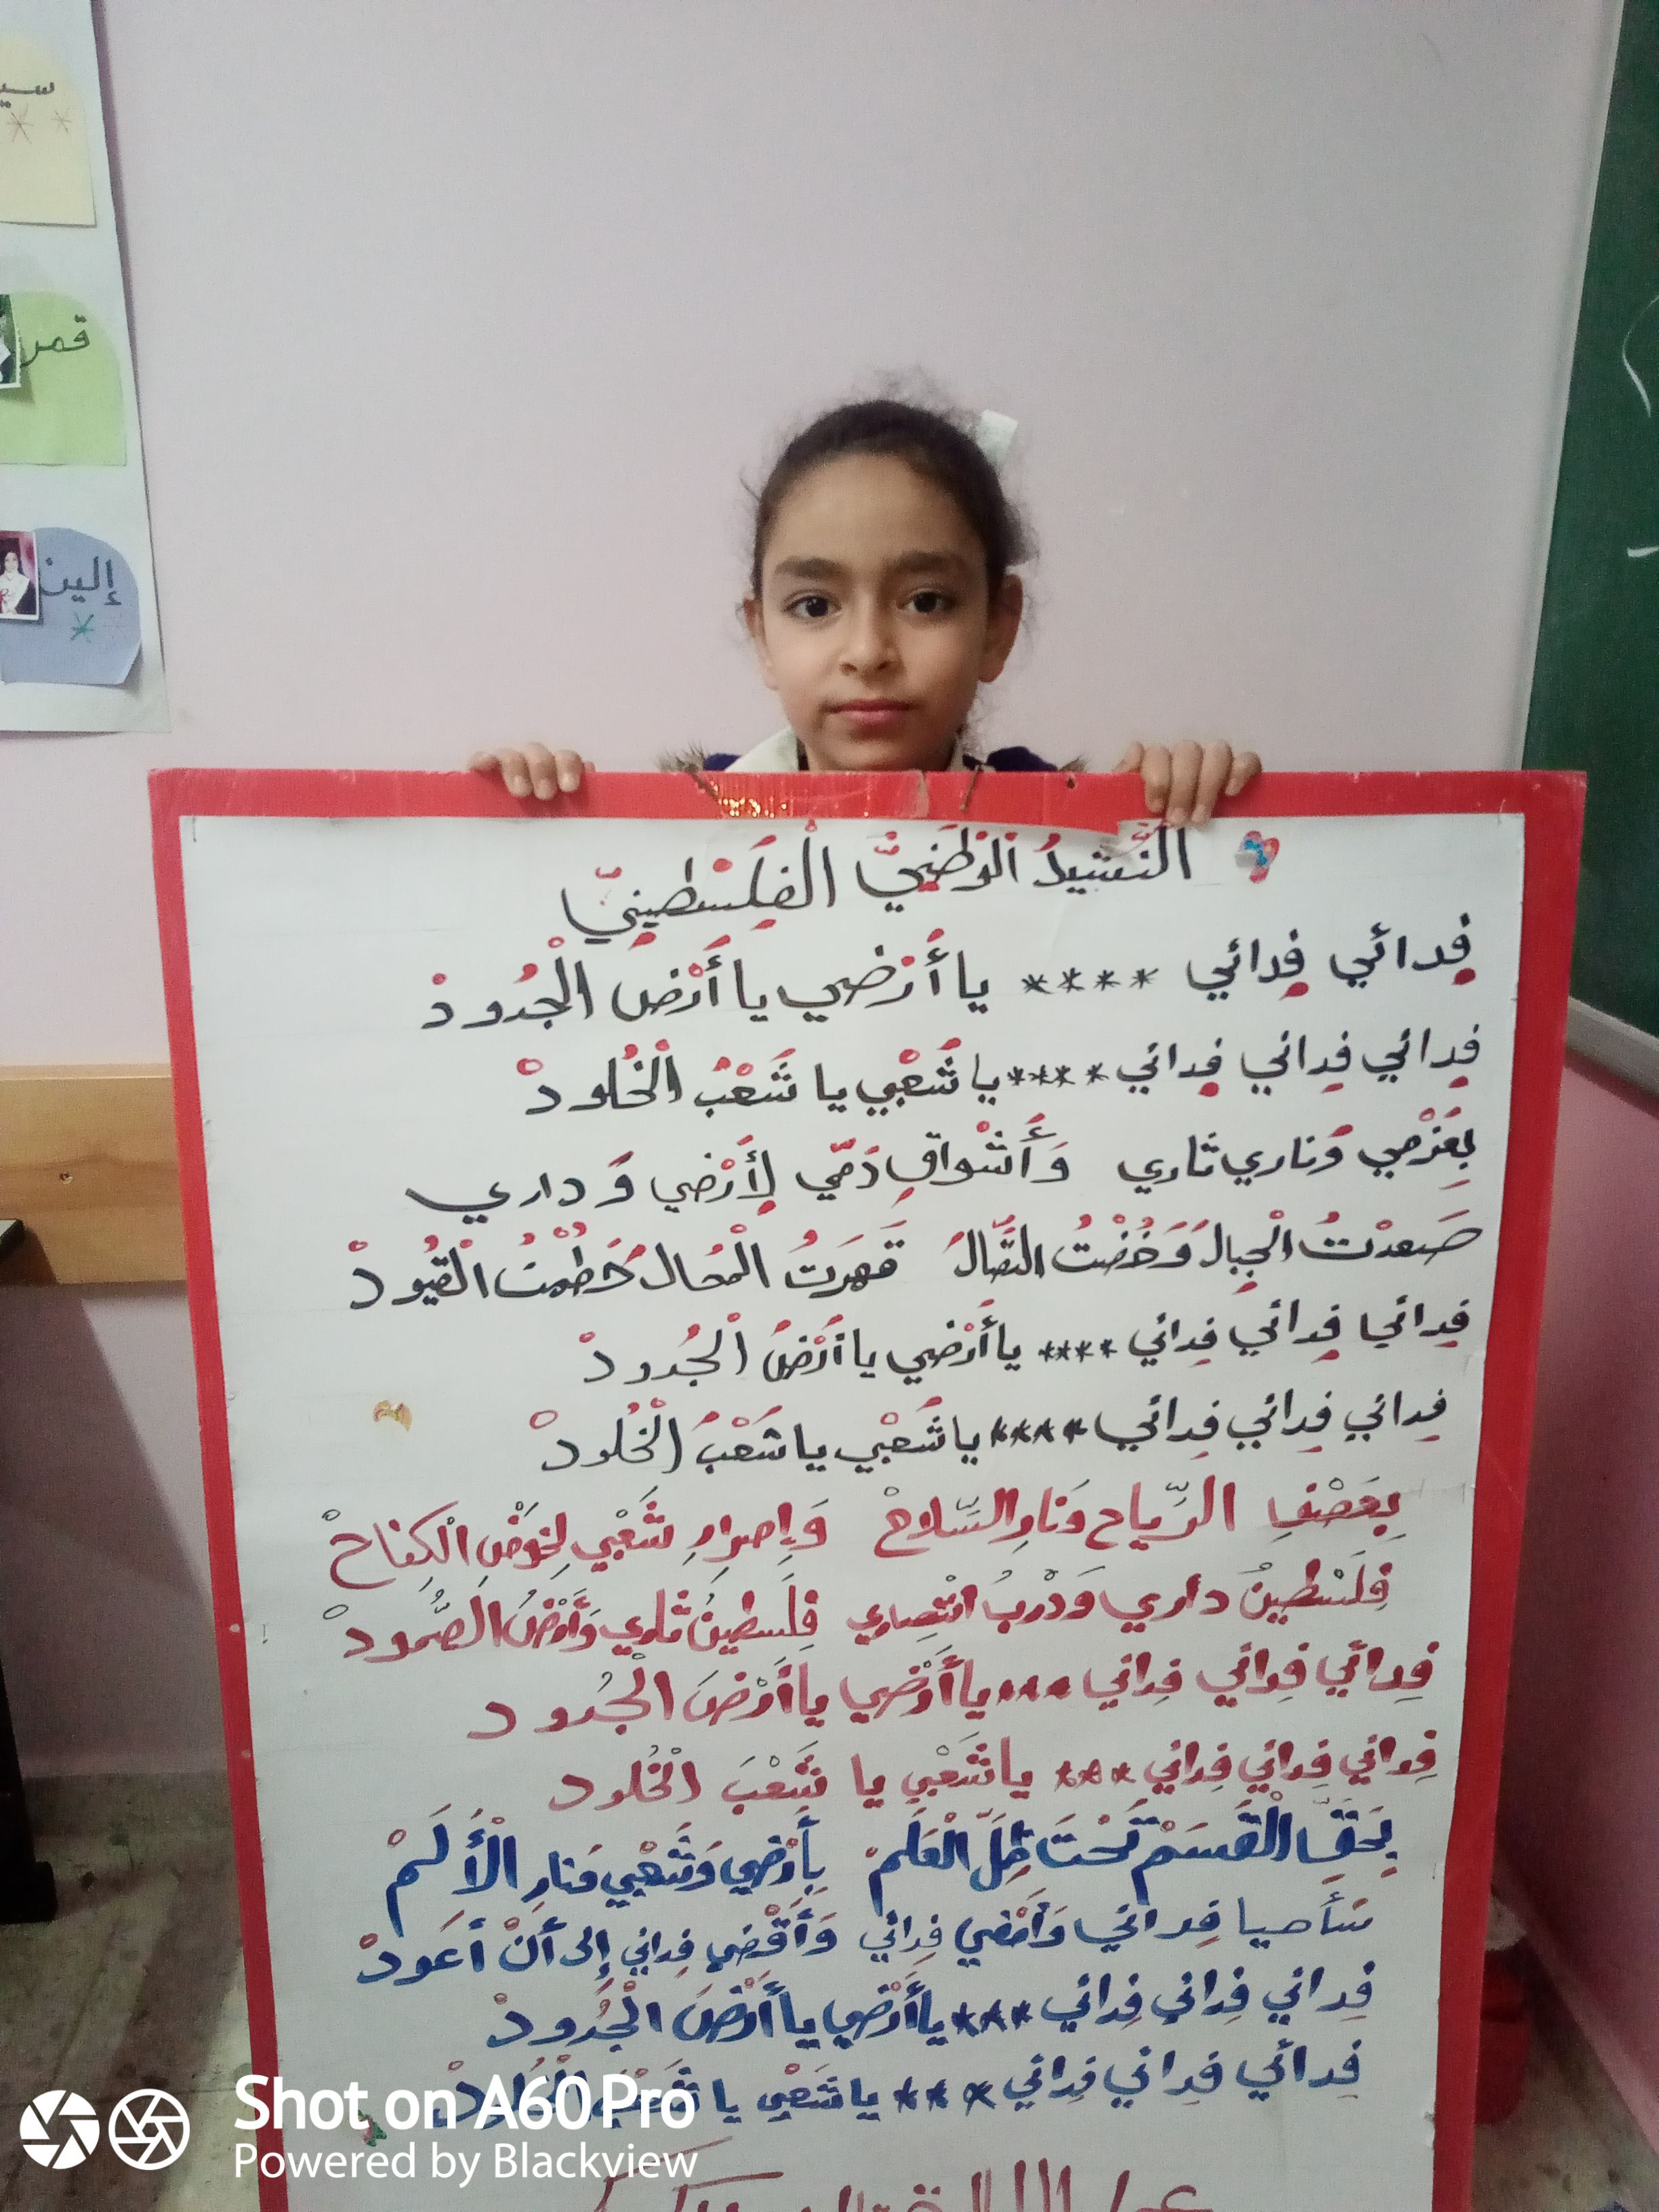 سي
قمر
إلين
النَّشيدُ الْوَطَنِيُّ الْفِلَسْطِينِيّ
فِدائي فِدائي **** يا أَرْضي يا أَرْضَ الْجُدودْ
فِدائي فِدائي فِدائي **** يا شَعْبي يا شَعْبَ الْخُلودْ
بِعَزْمي وَناري ثاري وَأَشْواقِ دَمّي لِأَرْضي وَداري
صَعدْتُ الْجِبالَ وَخُضْتُ النِّضالَ قَهَرتُ الْمُحالَ حَطَّمْتُ الْقُيودْ
فِدائي فِدائي فِدائي **** يا أَرْضي يا أَرْضَ الْجُدودْ
فِدائي فِدائي فِدائي **** يا شَعْبي يا شَعْبَ الْخُلودْ
بِعَصْفِ الرِّياح وَنارِ السِّلاحْ وَإِصرارِ شَعْبي لِخَوْضِ الْكِفاحْ
فِلَسْطينُ داري وَدَرْبُ انْتِصاري فِلَسطينُ ثاري وَأَرْضُ الصُّمودْ
فِدائي فِدائي فِدائي *** يا أَرْضي يا أَرْضَ الْجُدود
فِدائي فِدائي فِدائي *** يا شَعْبي يا شَعْبَ الْخُلود
بِحَقِّ الْقَسَمْ تَحْتَ ظِلِّ الْعَلَمْ بِأَرْضي وَشَعْبي وَنارِ الْأَلَمْ
سَأحيا فِدائي وَأَمْضي فِدائي وَأَقْضي فِدائي إِلى أَنْ أَعودْ
فِدائي فِدائي فِدائي *** يا أَرْضي يا أَرْضَ الْجُدودْ
فِدائي فِدائي فِدائي *** يا شَعْبي يا شَعْبَ الْخُلودْ
Shot on A60Pro
Powered by Blackview